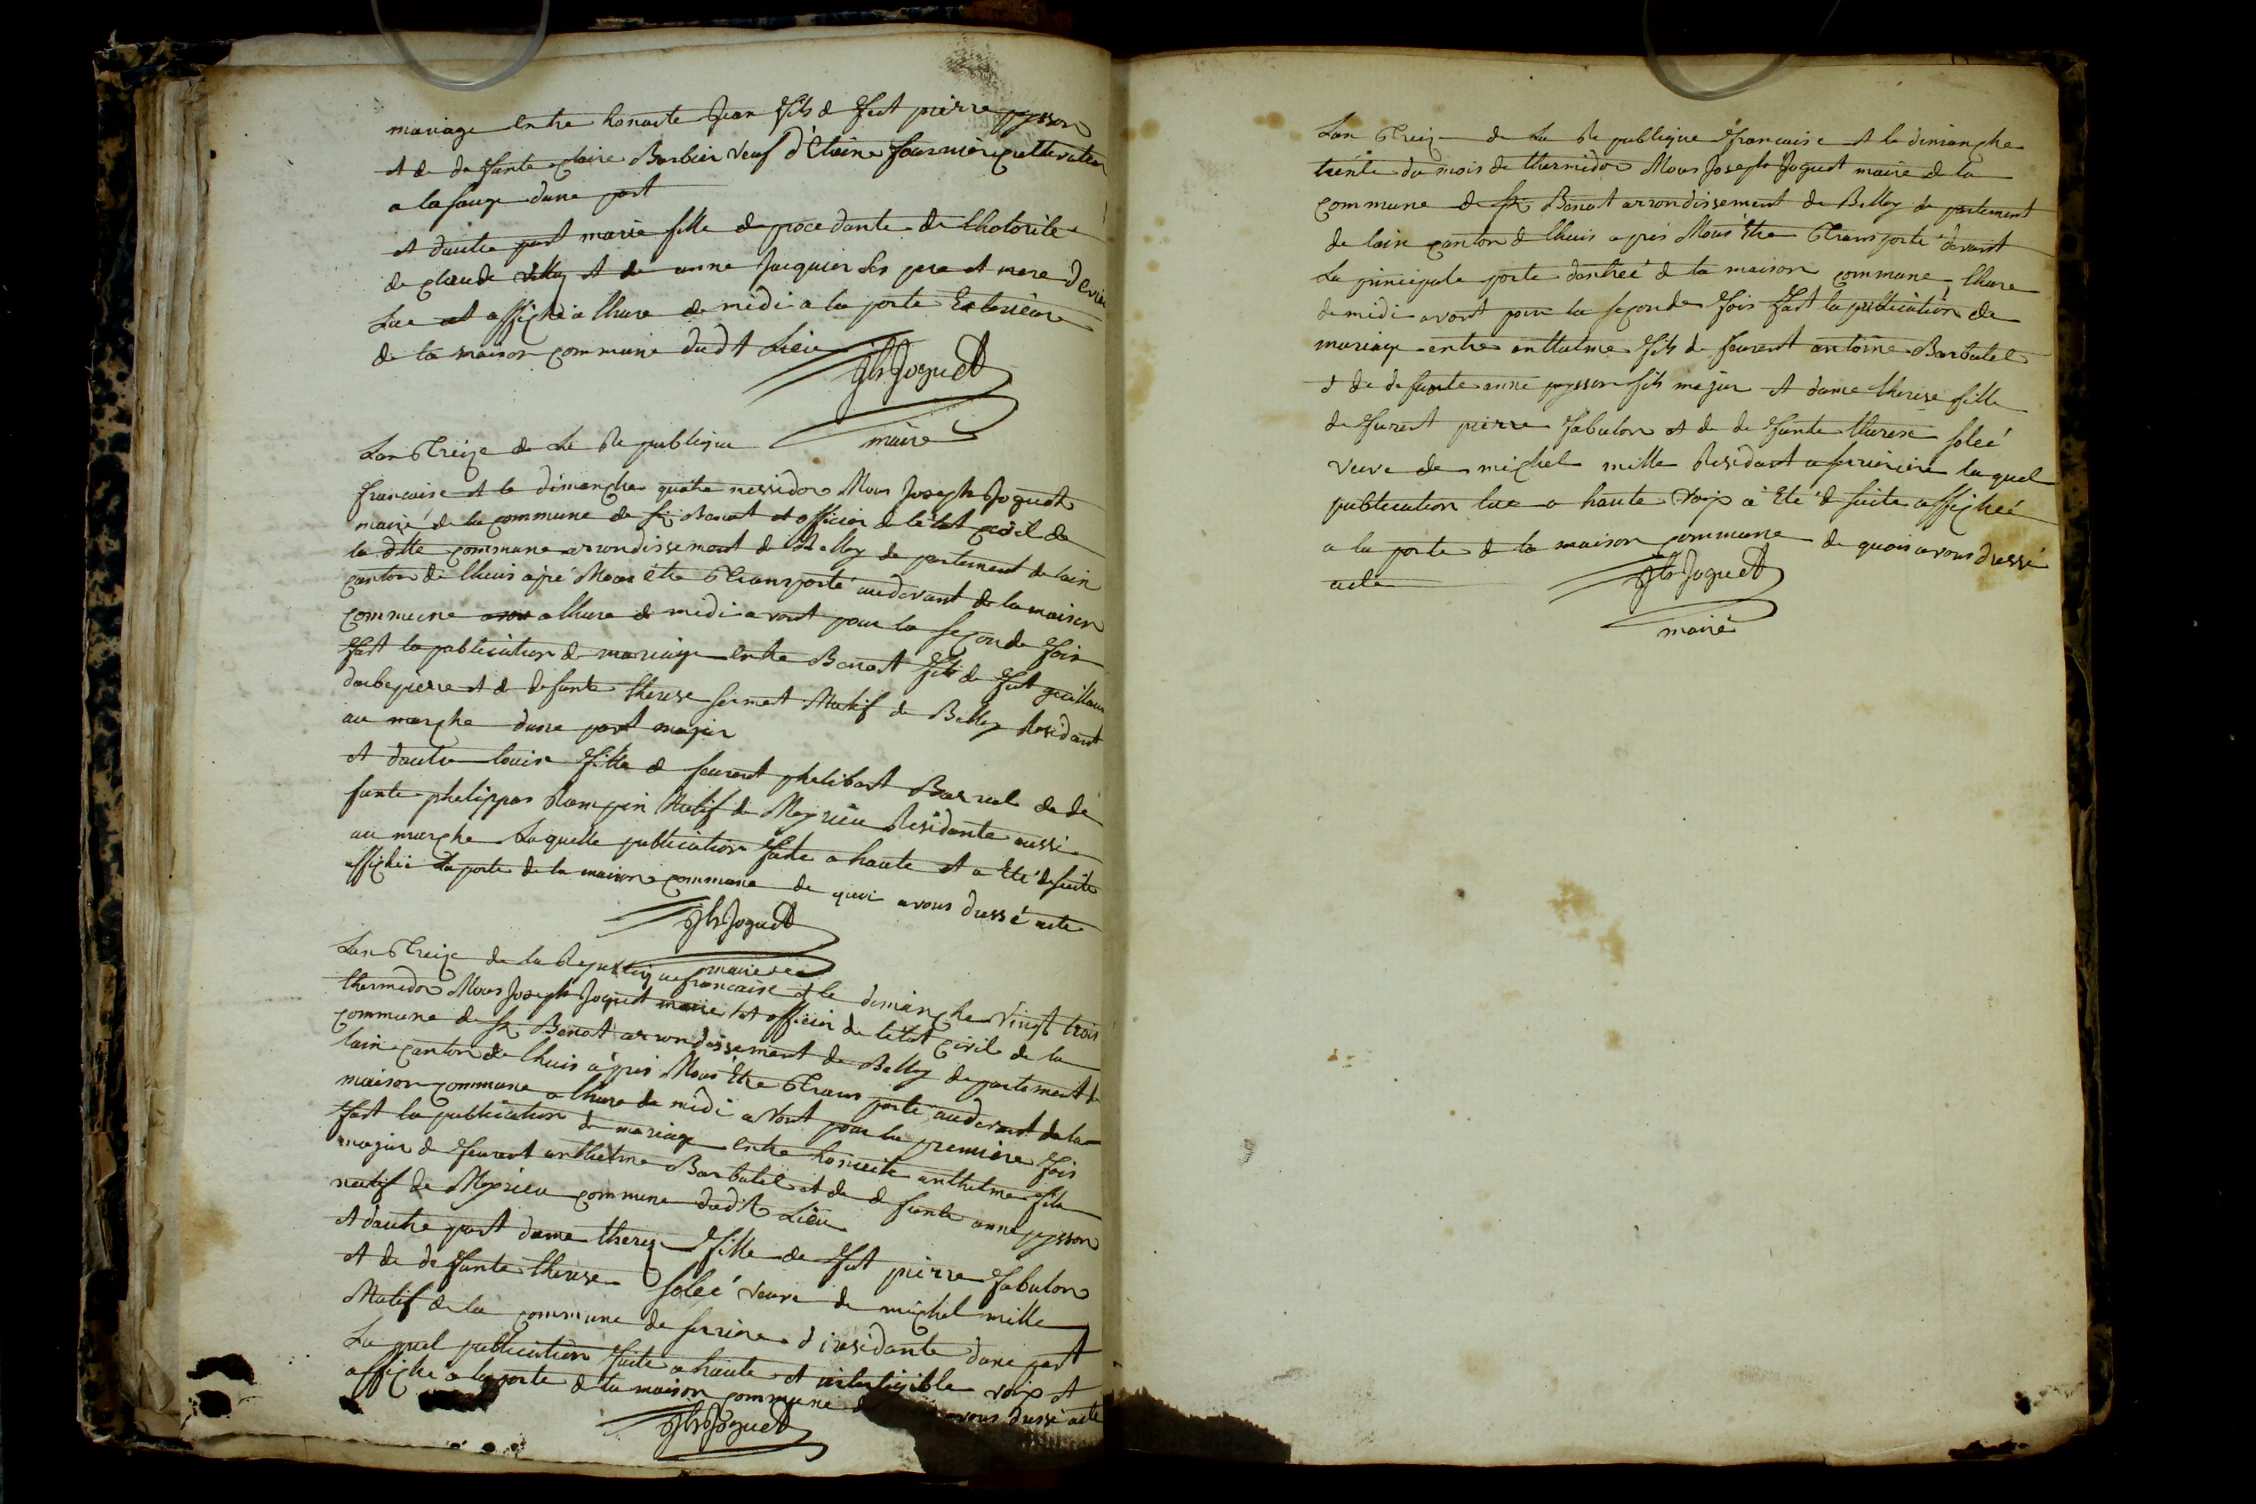 mariage entre honacte Jean fils de feut pierre pysson
et de defunte claire Barbier veuf d'Etiene fournier cultivateur
a la sauge dune part
et dautre part marie fille de procedante de lhotorite
de claude villy et de anne Jacquier ses pere et mere
Lue et affiché a lhure de midi a la porte Exterieure
de la maison commune dudt Lieu
Jh Joguet
maire
Lan Treize de La Republique
francaise et le dimanche quatre messidor Nous Joseph Joguet
maire de la commune de St Benoit et officier de létat civil de
la ditte commune arrondissement de Belley departement de lain
canton de lhuis apré Nous étre Transporté audevant de la maison
commune a lhure de midi avont pour la seconde fois
fait la publication de mariage entre Benoit fils de feut guillaume
et de defunte therese sermet Natif de Belley Residant
au marche dune part majur
et dautre louise fille de feurent phelibert Barruel de de
funte philippaz Rampin Natif de Meyrieu Residante aussi
au marche Laquelle publication faite a haute et a Eté de suite
affichée a la porte de la maison commune de quoi avons dressé acte
Jh Joguet
maire
Lan Treize de la Republique francaise et le dimanche vingt trois
thermidor Nous Joseph Joguet maire et officier de létat civil de la
commune de St Benoit arrondissement de Belley departement de
lain canton de lhuis aprés Nous Etre Transporté audevant de la
maison commune a lhure de midi avont pour la premiére fois
fait la publication de mariage entre honacte anthelme fils
majur de feurent anthelme Barbutel et de defunte anne pysson
natif de Meyrieu commune dudit Lieu
et dautre part dame therese fille de feut pierre fabulon
et de defunte therese soleé veuve de michel mille
Natif de la commune de serriere residante dune part
La quel publication faite a haute et inteligible voix et
affiche a la porte de la maison commune avons dressé acte
Jh Joguet
Lan Treize de La Republique francaise et le dimanche
trente du mois de thermidor Nous Joseph Joguet maire de la
commune de St Benoit arrondissement de Belley departement
de lain canton de lhuis apres Nous Etre Transporté devant
La principale porte dantreé de la maison commune lhure
de midi avont pour la seconde fois fait la publication de
mariage entre anthelme fils de feurent antoine Barbutel
et de defunte anne pysson fils majur et dame therese fille
de feurent pierre fabulon et de defunte therese soleé
veuve de michel mille Residant a serriere laquel
publication lue a haute voix a Eté de suite afficheé
a la porte de la maison commune de quoi avons dressé
acte
Jh Joguet
maire